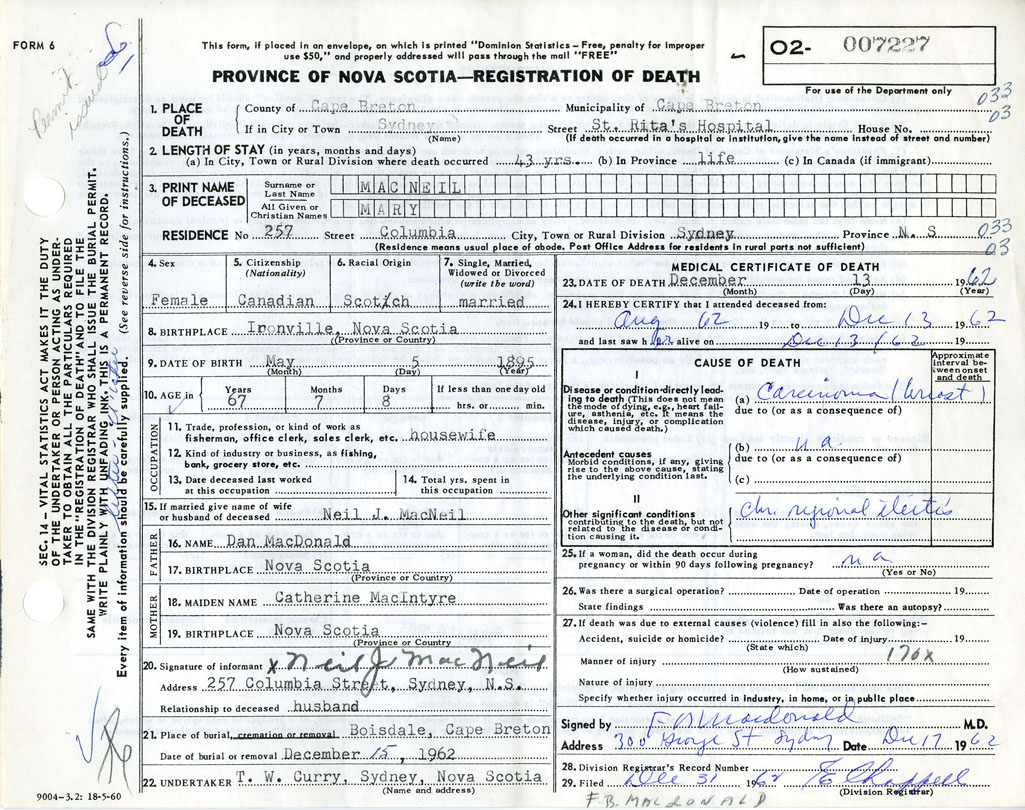 FORM 6
This form, if placed in an envelope, on which is printed "Dominion Statistics – Free, penalty for improper
use $50," and properly addressed will pass through the mail "FREE"
PROVINCE OF NOVA SCOTIA—REGISTRATION OF DEATH
O2- 007227
For use of the Department only
033
03
Permit
issued
1. PLACE OF DEATH
County of Cape Breton Municipality of Cape Breton
If in City or Town Sydney Street St. Rita's Hospital House No.
(Name) (If death occurred in a hospital or institution, give the name instead of street and number)
2. LENGTH OF STAY (in years, months and days)
(a) In City, Town or Rural Division where death occurred 43 yrs. (b) In Province life (c) In Canada (if immigrant)
3. PRINT NAME OF DECEASED
Surname or Last Name MACNEIL
All Given or Christian Names MARY
RESIDENCE No 257 Street Columbia City, Town or Rural Division Sydney Province N. S
(Residence means usual place of abode. Post Office Address for residents in rural parts not sufficient)
033
03
4. Sex
Female
5. Citizenship (Nationality)
Canadian
6. Racial Origin
Scotch
7. Single, Married, Widowed or Divorced (write the word)
married
8. BIRTHPLACE Ironville, Nova Scotia
(Province or Country)
9. DATE OF BIRTH May 5 1895
(Month) (Day) (Year)
10. AGE in Years Months Days If less than one day old
67 7 8 hrs. or min.
OCCUPATION
11. Trade, profession, or kind of work as
fisherman, office clerk, sales clerk, etc. housewife
12. Kind of industry or business, as fishing,
bank, grocery store, etc.
13. Date deceased last worked
at this occupation
14. Total yrs. spent in
this occupation
15. If married give name of wife
or husband of deceased Neil J. MacNeil
FATHER
16. NAME Dan MacDonald
17. BIRTHPLACE Nova Scotia
(Province or Country)
MOTHER
18. MAIDEN NAME Catherine MacIntyre
19. BIRTHPLACE Nova Scotia
(Province or Country
20. Signature of informant x Neil J. MacNeil
Address 257 Columbia Street, Sydney, N.S.
Relationship to deceased husband
21. Place of burial, cremation or removal Boisdale, Cape Breton
Date of burial or removal December 15, 1962
22. UNDERTAKER T. W. Curry, Sydney, Nova Scotia
(Name and address)
MEDICAL CERTIFICATE OF DEATH
23. DATE OF DEATH December 13 1962
(Month) (Day) (Year)
24. I HEREBY CERTIFY that I attended deceased from:
Aug 62 19 to Dec 13 1962
and last saw her alive on Dec 13 / 62 19
CAUSE OF DEATH
Approximate interval between onset and death
I
Disease or condition directly leading to death (This does not mean the mode of dying, e.g., heart failure, asthenia, etc. It means the disease, injury, or complication which caused death.)
(a) Carcinoma (breast)
due to (or as a consequence of)
Antecedent causes
Morbid conditions, if any, giving rise to the above cause, stating the underlying condition last.
(b) n a
due to (or as a consequence of)
(c)
II
Other significant conditions
contributing to the death, but not related to the disease or condition causing it.
chr. regional ileitis
25. If a woman, did the death occur during
pregnancy or within 90 days following pregnancy? n a
(Yes or No)
26. Was there a surgical operation? Date of operation 19
State findings Was there an autopsy?
27. If death was due to external causes (violence) fill in also the following:–
Accident, suicide or homicide? Date of injury 19
(State which)
170x
Manner of injury
(How sustained)
Nature of injury
Specify whether injury occurred in Industry, in home, or in public place
Signed by F B Macdonald M.D.
Address 300 George St Sydney Date Dec 17 1962
28. Division Registrar's Record Number
29. Filed Dec 31 1962 E Chappell
(Division Registrar)
F.B. MACDONALD
SEC. 14 – VITAL STATISTICS ACT MAKES IT THE DUTY
OF THE UNDERTAKER OR PERSON ACTING AS UNDER-
TAKER TO OBTAIN ALL THE PARTICULARS REQUIRED
IN THE "REGISTRATION OF DEATH" AND TO FILE THE
SAME WITH THE DIVISION REGISTRAR WHO SHALL ISSUE THE BURIAL PERMIT.
WRITE PLAINLY WITH UNFADING INK. THIS IS A PERMANENT RECORD.
Every item of information should be carefully supplied. (See reverse side for instructions.)
9004-3.2: 18-5-60